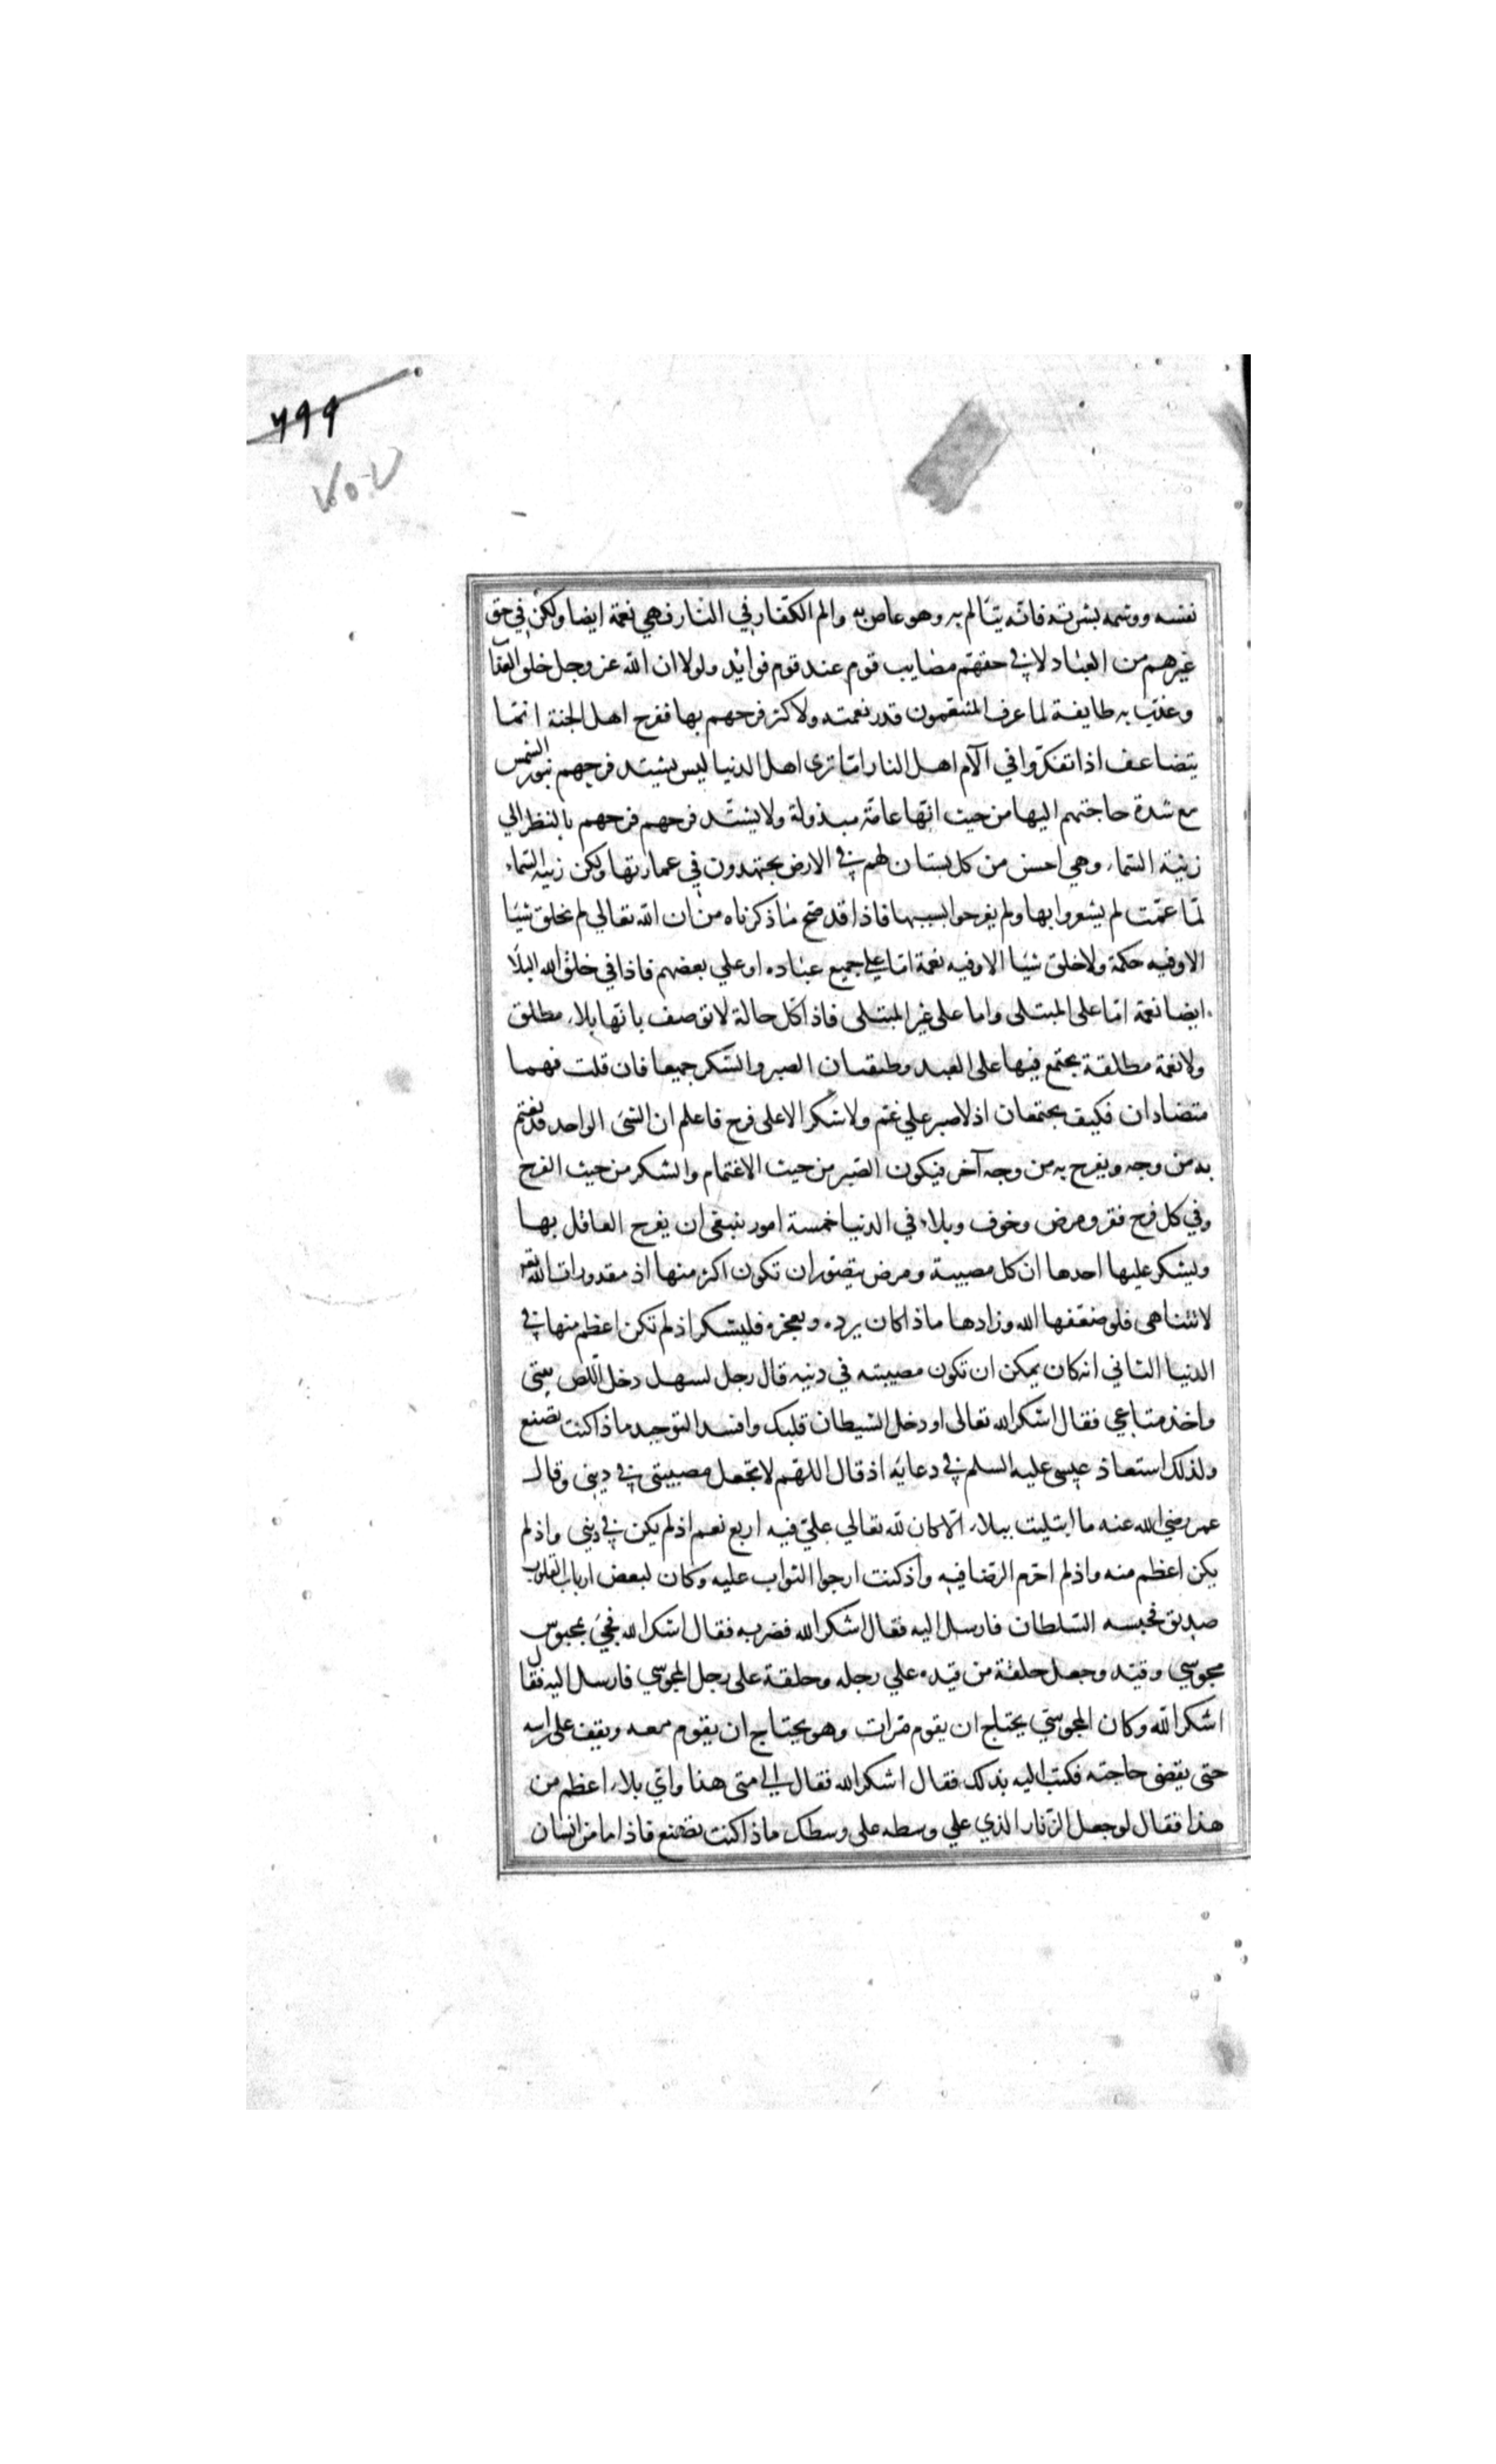 ٦٩٩
٧٥٠٧
نفسه ووشمه بشرته فانه يتألم به وهو عاص به والم الكفار في النار فهي نعمة ايضا ولكن في حق
غيرهم من العباد لا في حقهم مصايب قوم عند قوم فوائد ولولا ان الله عز وجل خلق العذاب
وعذب به طايفة لما عرف المتنعمون قدر نعمته ولا كثر فرحهم بها ففرح اهل الجنة انما
يتضاعف اذا تفكروا في آلام اهل النار اما ترى اهل الدنيا ليس يشتد فرحهم بنور الشمس
مع شدة حاجتهم اليها من حيث انها عامة مبذولة ولا يشتد فرحهم فرحهم بالنظر الي
زينة السماء وهي احسن من كل بستان لهم في الارض يجتهدون في عمارتها ولكن زينة السماء
لما عمت لم يشعروا بها ولم يفرحوا بسببها فاذا قد صح ما ذكرناه من ان الله تعالي لم يخلق شيئا
الا وفيه حكمة ولا خلق شيئا الا وفيه نعمة اما علي جميع عباده او علي بعضهم فاذا في خلق الله البلاء
ايضا نعمة اما على المبتلى واما على غير المبتلى فاذا كل حالة لا توصف بانها بلاء مطلق
ولا نعمة مطلقة يجتمع فيها على العبد وظيفتان الصبر والشكر جميعا فان قلت فهما
متضادان فكيف يجتمعان اذ لا صبر الا علي غم ولا شكر الا على فرح فاعلم ان الشئ الواحد قد يغتم
به من وجه ويفرح به من وجه آخر فيكون الصبر من حيث الاغتمام والشكر من حيث الفرح
وفي كل فرح فقر ومرض وخوف وبلاء في الدنيا خمسة امور ينبغي ان يفرح العاقل بها
ويشكر عليها احدها ان كل مصيبة ومرض يتصور ان تكون اكثر منها اذ مقدورات الله تعالى
لا تتناهى فلو ضعفها الله وزادها ماذا كان يرده ويحجزه فليشكر اذ لم تكن اعظم منها في
الدنيا الثاني انه كان يمكن ان تكون مصيبته في دينه قال رجل لسهل دخل اللص بيتي
واخذ متاعي فقال اشكر الله تعالى لو دخل الشيطان قلبك وافسد التوحيد ماذا كنت تصنع
ولذلك استعاذ عيسى عليه السلم في دعائه اذ قال اللهم لا تجعل مصيبتي في ديني وقال
عمر رضي الله عنه ما ابتليت ببلاء الا كان لله تعالي علي فيه اربع نعم اذ لم يكن في ديني واذ لم
يكن اعظم منه واذ لم احرم الرضا فيه واذ كنت ارجوا الثواب عليه وكان لبعض ارباب القلوب
صديق فحبسه السلطان فارسل اليه فقال اشكر الله فضربه فقال اشكر الله فجئ بمحبوس
مجوسي وقيد وجعل حلقة من قيده علي رجله وحلقة على رجل المجوسي فارسل اليه فقال
اشكر الله وكان المجوسي يحتاج ان يقوم مرات وهو يحتاج ان يقوم معه ويقف على راسه
حتى يقضى حاجته فكتب اليه بذلك فقال اشكر الله فقال الي متى هذا واي بلاء اعظم من
هذا فقال لو جعل الزنار الذي علي وسطه على وسطك ماذا كنت تصنع فاذا ما من انسان